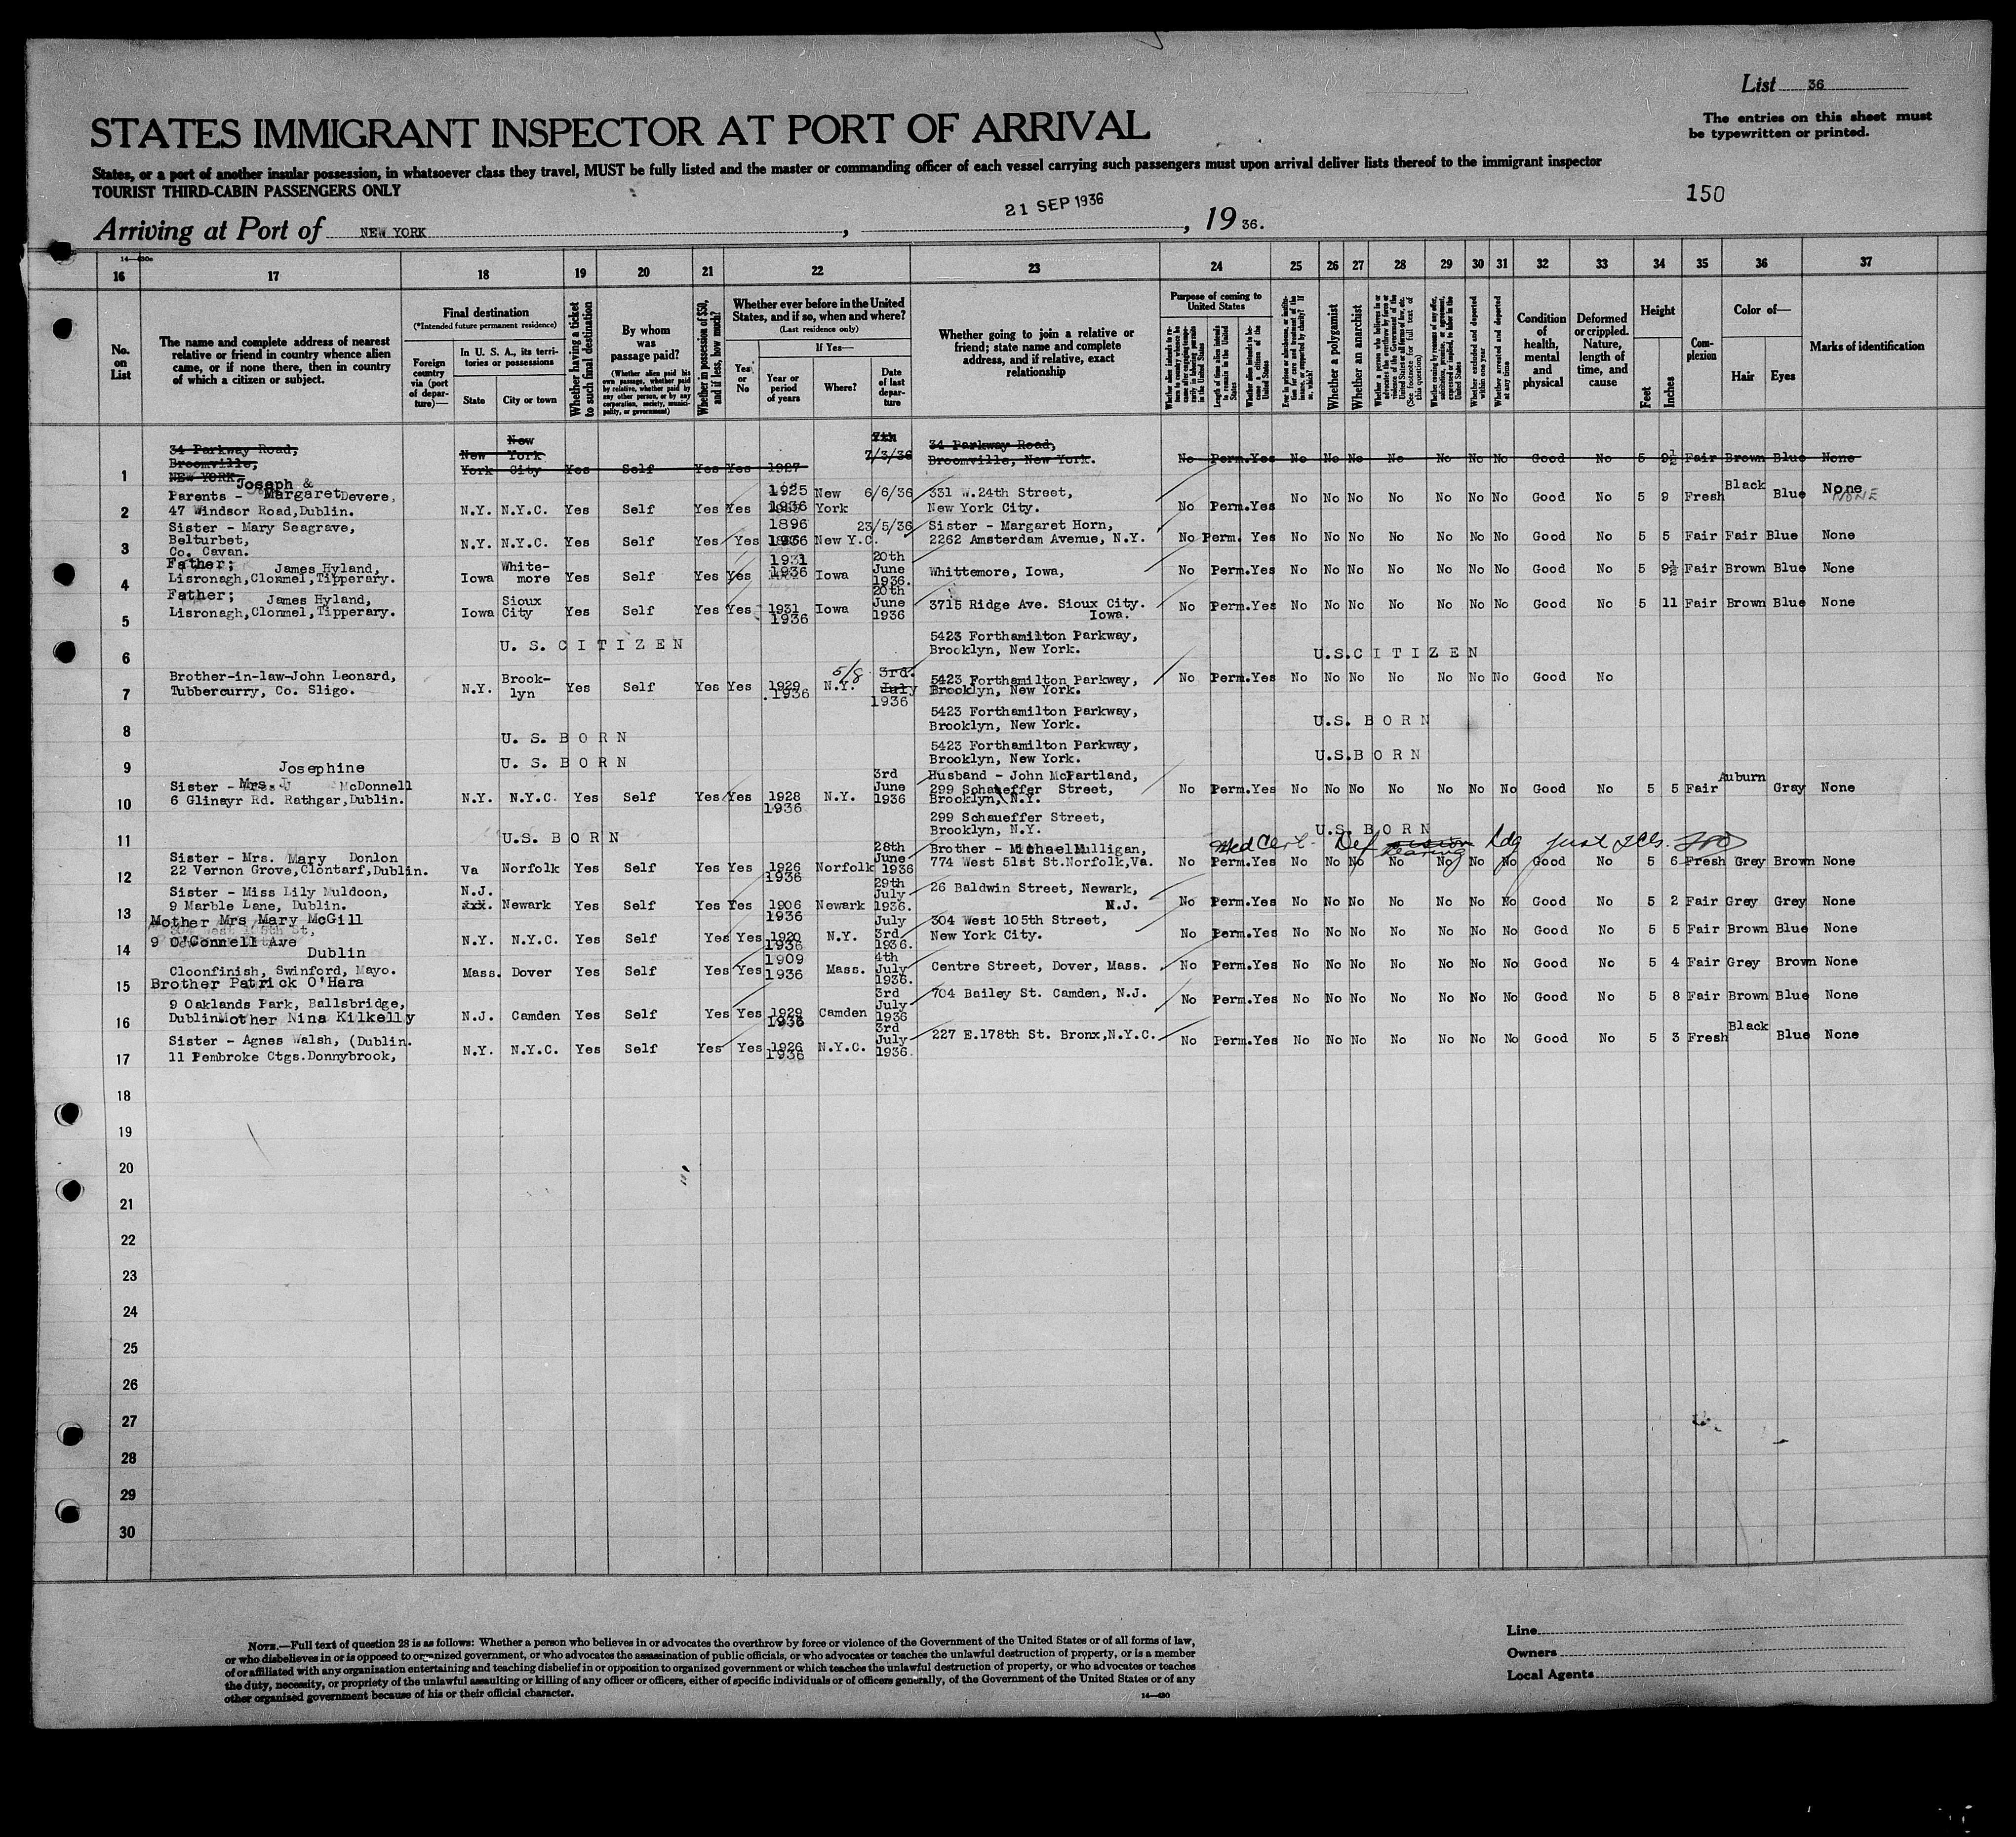 List 36
The entries on this sheet must
be typewritten or printed.
STATES IMMIGRANT INSPECTOR AT PORT OF ARRIVAL
States, or a port of another insular possession, in whatsoever class they travel, MUST be fully listed and the master or commanding officer of each vessel carrying such passengers must upon arrival deliver lists thereof to the immigrant inspector
TOURIST THIRD-CABIN PASSENGERS ONLY
150
Arriving at Port of NEW YORK, 21 SEP 1936, 19 36.
16 17 18 19 20 21 22 23 24 25 26 27 28 29 30 31 32 33 34 35 36 37
No. on List
The name and complete address of nearest relative or friend in country whence alien came, or if none there, then in country of which a citizen or subject.
Final destination
(*Intended future permanent residence)
Foreign country via (port of departure)—
In U. S. A., its territories or possessions
State
City or town
Whether having a ticket to such final destination
By whom was passage paid?
(Whether alien paid his own passage, whether paid by relative, whether paid by any other person, or by any corporation, society, municipality, or government)
Whether in possession of $50, and if less, how much?
Whether ever before in the United States, and if so, when and where?
(Last residence only)
Yes or No
If Yes—
Year or period of years
Where?
Date of last departure
Whether going to join a relative or friend; state name and complete address, and if relative, exact relationship
Purpose of coming to United States
Length of time alien intends to remain in the United States
Whether alien intends to become a citizen of the United States
Whether a polygamist
Whether an anarchist
Whether excluded and deported within one year
Whether arrested and deported at any time
Condition of health, mental and physical
Deformed or crippled. Nature, length of time, and cause
Height
Feet
Inches
Complexion
Color of—
Hair
Eyes
Marks of identification
1 34 Parkway Road, Broomville, NEW YORK New York New York City Yes Self Yes Yes 1927 7th 7/3/36 34 Parkway Road, Broomville, New York. No Perm. Yes No No No No No No No Good No 5 9½ Fair Brown Blue None
2 Parents - Joseph & Margaret Devere, 47 Windsor Road, Dublin. N.Y. N.Y.C. Yes Self Yes Yes 1925 1936 New York 6/6/36 331 W.24th Street, New York City. No Perm. Yes No No No No No No No Good No 5 9 Fresh Black Blue None NONE
3 Sister - Mary Seagrave, Belturbet, Co. Cavan. N.Y. N.Y.C. Yes Self Yes Yes 1896 1936 New Y.C. 23/5/36 Sister - Margaret Horn, 2262 Amsterdam Avenue, N.Y. No Perm. Yes No No No No No No No Good No 5 5 Fair Fair Blue None
4 Father; James Hyland, Lisronagh, Clonmel, Tipperary. Iowa White-more Yes Self Yes Yes 1931 1936 Iowa 20th June 1936. Whittemore, Iowa, No Perm. Yes No No No No No No No Good No 5 9½ Fair Brown Blue None
5 Father; James Hyland, Lisronagh, Clonmel, Tipperary. Iowa Sioux City Yes Self Yes Yes 1931 1936 Iowa 20th June 1936 3715 Ridge Ave. Sioux City. Iowa. No Perm. Yes No No No No No No No Good No 5 11 Fair Brown Blue None
6 U. S. C I T I Z E N 5423 Forthamilton Parkway, Brooklyn, New York. U.S.C I T I Z E N
7 Brother-in-law-John Leonard, Tubbercurry, Co. Sligo. N.Y. Brook-lyn Yes Self Yes Yes 1929 1936 N.Y. 5/8 3rd. July 1936 5423 Forthamilton Parkway, Brooklyn, New York. No Perm. Yes No No No No No No No Good No
8 U. S. B O R N 5423 Forthamilton Parkway, Brooklyn, New York. U.S. B O R N
9 U. S. B O R N 5423 Forthamilton Parkway, Brooklyn, New York. U.S.B O R N
10 Sister - Mrs. J Josephine McDonnell 6 Glinayr Rd. Rathgar, Dublin. N.Y. N.Y.C. Yes Self Yes Yes 1928 1936 N.Y. 3rd June 1936 Husband - John McPartland, 299 Schaueffer Street, Brooklyn, N.Y. No Perm. Yes No No No No No No No Good No 5 5 Fair Auburn Gray None
11 U.S. B O R N 299 Schaueffer Street, Brooklyn, N.Y. U.S. B O R N
Med Cert. Def hearing
12 Sister - Mrs. Mary Donlon 22 Vernon Grove, Clontarf, Dublin. Va Norfolk Yes Self Yes Yes 1926 1936 Norfolk 28th June 1936 Brother - Michael Mulligan, 774 West 51st St. Norfolk, Va. No Perm. Yes No No No No No No No Good No 5 6 Fresh Grey Brown None
13 Sister - Miss Lily Muldoon, 9 Marble Lane, Dublin. N.J. xxx. Newark Yes Self Yes Yes 1906 1936 Newark 29th July 1936. 26 Baldwin Street, Newark, N.J. No Perm. Yes No No No No No No No Good No 5 2 Fair Grey Grey None
14 Mother Mrs Mary McGill 9 O'Connell Ave Dublin N.Y. N.Y.C. Yes Self Yes Yes 1920 1936 N.Y. July 3rd 1936. 304 West 105th Street, New York City. No Perm. Yes No No No No No No No Good No 5 5 Fair Brown Blue None
15 Cloonfinish, Swinford, Mayo. Brother Patrick O'Hara Mass. Dover Yes Self Yes Yes 1909 1936 Mass. 4th July 1936. Centre Street, Dover, Mass. No Perm. Yes No No No No No No No Good No 5 4 Fair Grey Brown None
16 9 Oaklands Park, Ballsbridge, Dublin Mother Nina Kilkelly N.J. Camden Yes Self Yes Yes 1929 1936 Camden 3rd July 1936 704 Bailey St. Camden, N.J. No Perm. Yes No No No No No No No Good No 5 8 Fair Brown Blue None
17 Sister - Agnes Walsh, (Dublin. 11 Pembroke Ctgs. Donnybrook, N.Y. N.Y.C. Yes Self Yes Yes 1926 1936 N.Y.C. 3rd July 1936. 227 E.178th St. Bronx, N.Y.C. No Perm. Yes No No No No No No No Good No 5 3 Fresh Black Blue None
18
19
20
21
22
23
24
25
26
27
28
29
30
NOTE.—Full text of question 28 is as follows: Whether a person who believes in or advocates the overthrow by force or violence of the Government of the United States or of all forms of law,
or who disbelieves in or is opposed to organized government, or who advocates the assassination of public officials, or who advocates or teaches the unlawful destruction of property, or is a member
of or affiliated with any organization entertaining and teaching disbelief in or opposition to organized government or which teaches the unlawful destruction of property, or who advocates or teaches
the duty, necessity, or propriety of the unlawful assaulting or killing of any officer or officers, either of specific individuals or of officers generally, of the Government of the United States or of any
other organized government because of his or their official character.
14—430
Line
Owners
Local Agents